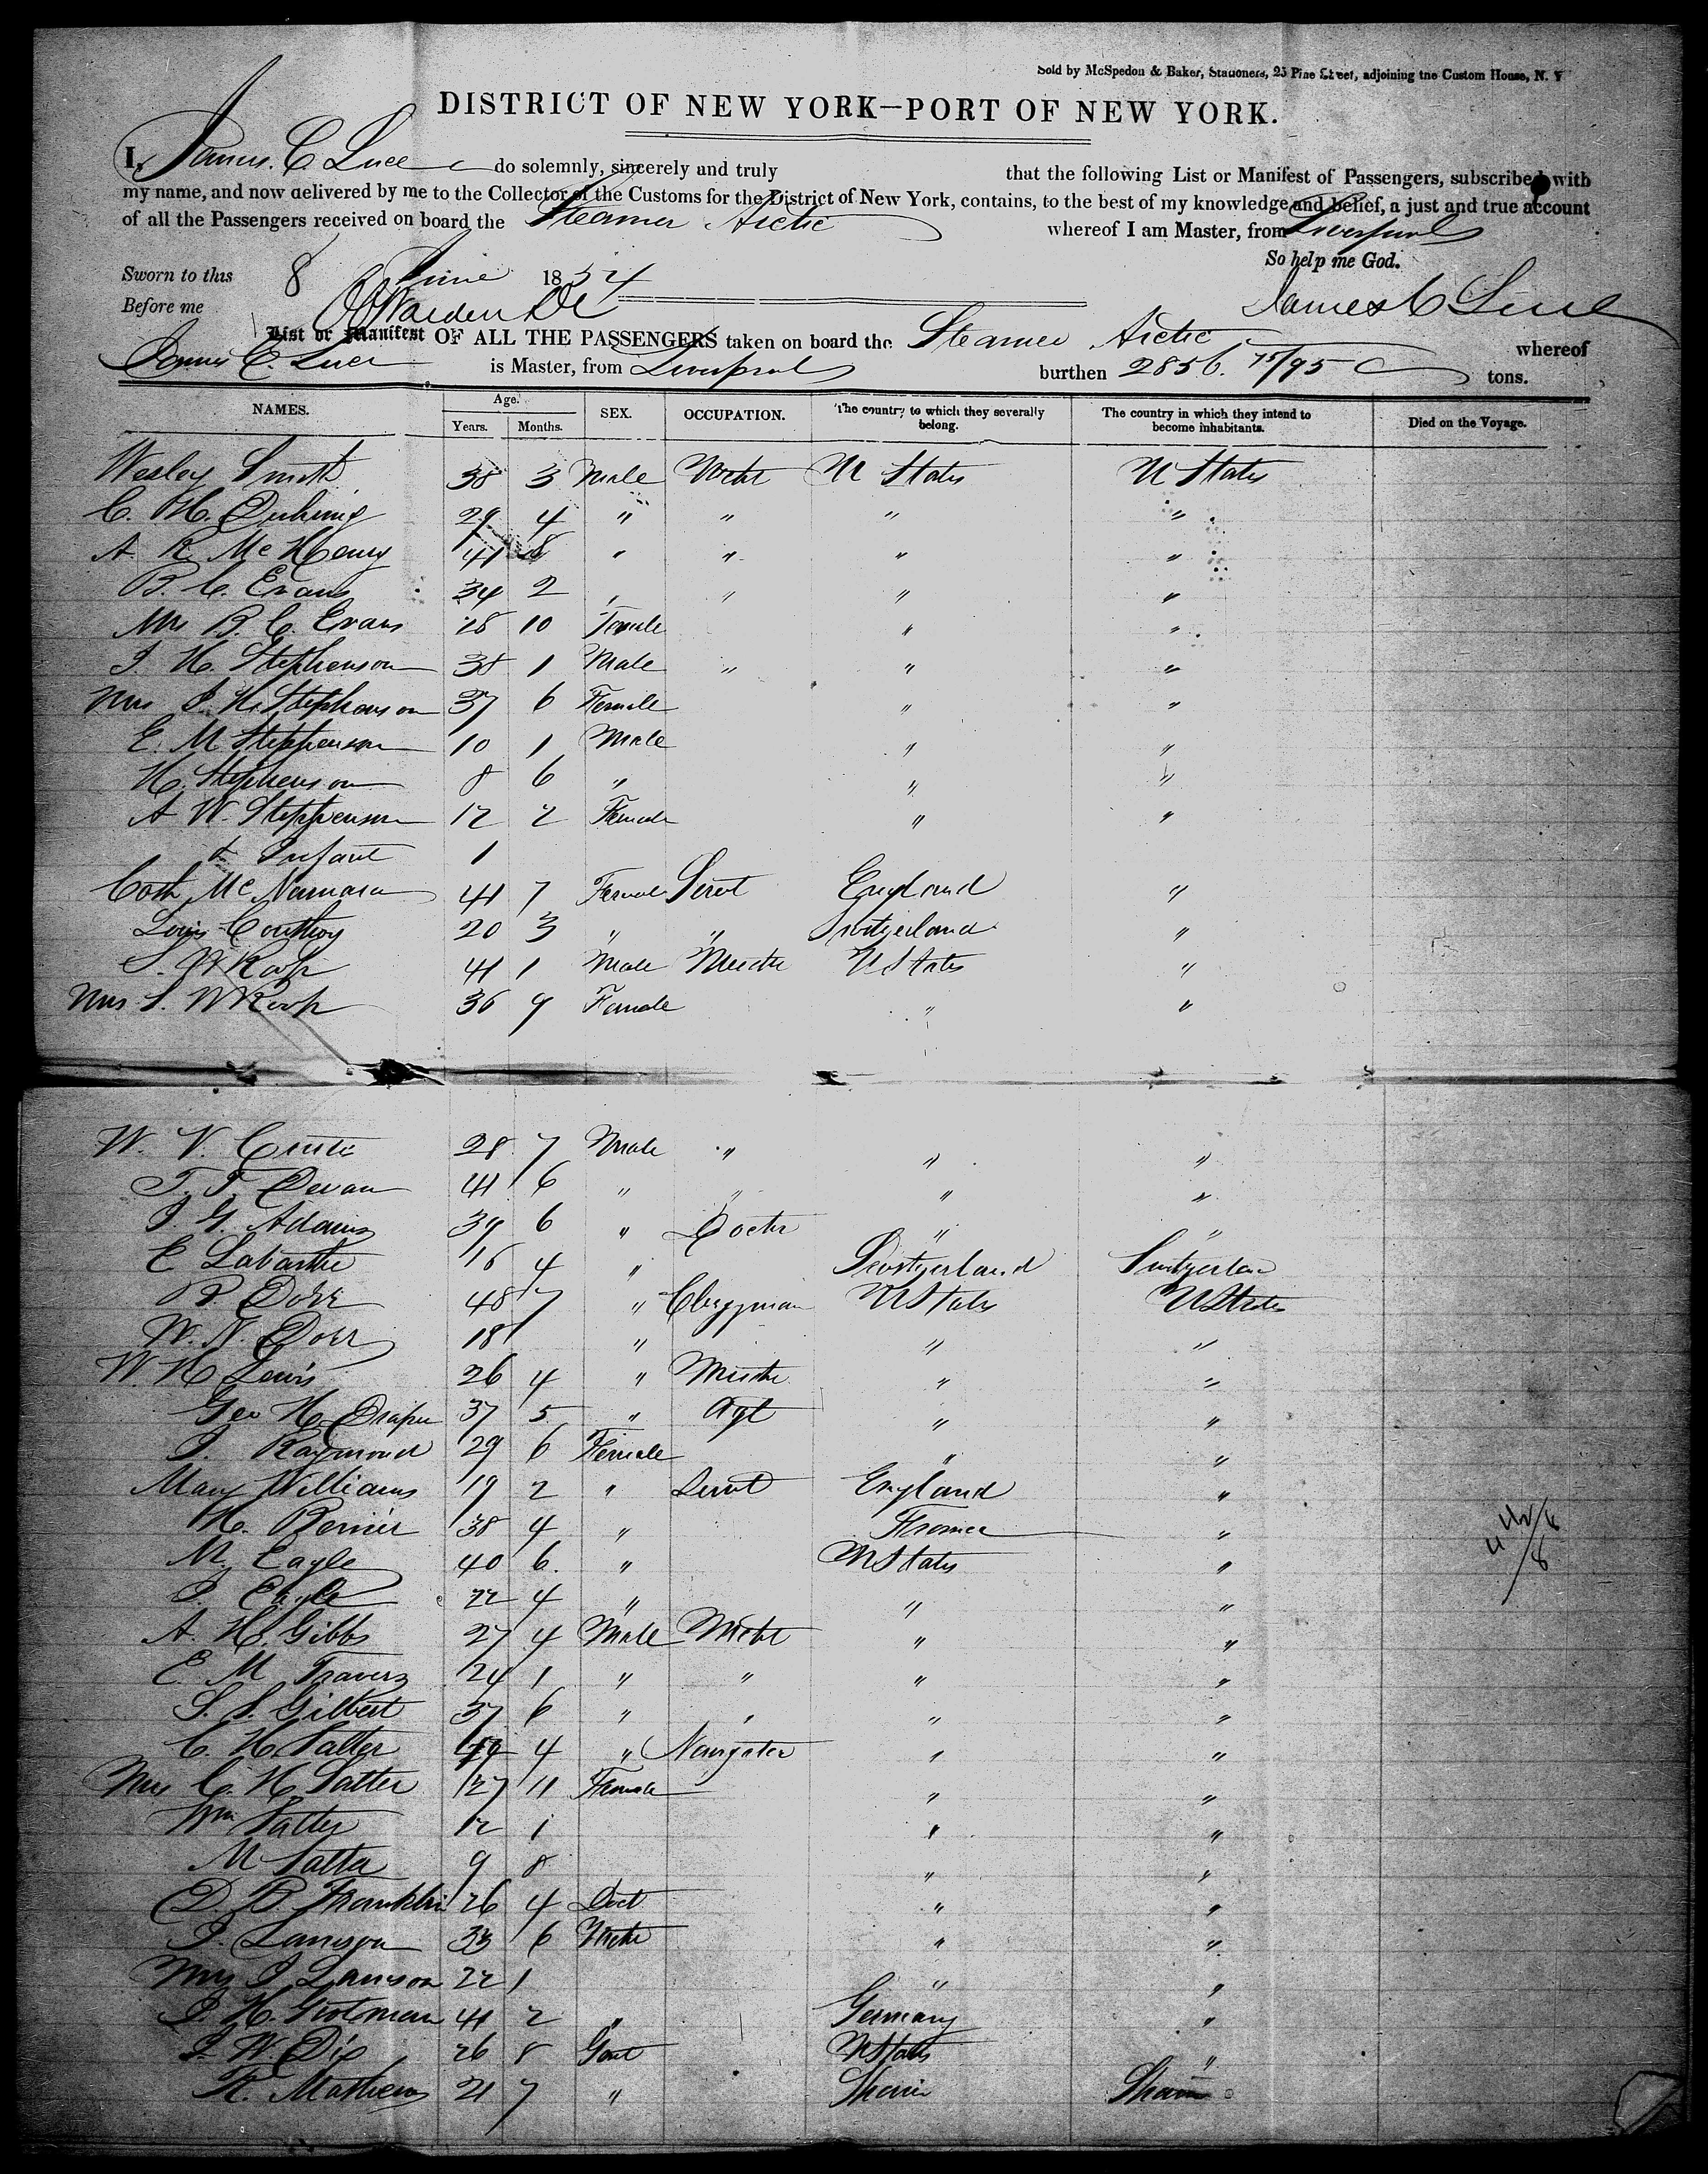 Sold by McSpedon & Baker, Stationers, 25 Pine Street, adjoining the Custom House, N. Y
DISTRICT OF NEW YORK—PORT OF NEW YORK.
I, James C Luce do solemnly, sincerely and truly that the following List or Manifest of Passengers, subscribed with
my name, and now delivered by me to the Collector of the Customs for the District of New York, contains, to the best of my knowledge and belief, a just and true account
of all the Passengers received on board the Steamer Arctic whereof I am Master, from Liverpool
So help me God.
Sworn to this 8 June 1854
James C Luce
Before me
List or Manifest OF ALL THE PASSENGERS taken on board the Steamer Arctic whereof
James C. Luce is Master, from Liverpool burthen 2856. 75/95 tons.
NAMES. Age. Years. Months. SEX. OCCUPATION. The country to which they severally belong. The country in which they intend to become inhabitants. Died on the Voyage.
Wesley Smith 38 3 Male U States U States
C. H. 29 4 " " " "
A. R. Mc Henry 41 8 " " " "
B. C. Evans 34 2 " " " "
Mrs B. C. Evans 28 10 Female " "
J. H. Stephenson 38 1 Male " " "
Mrs J. H. Stephenson 37 6 Female " "
E. M Stephenson 10 1 Male " "
H. Stephenson 8 6 " " "
A W. Stephenson 12 2 Female " "
& Infant 1
Cath Mc Namara 41 7 Female Servt England "
20 3 " " Switzerland "
41 1 Male U States "
Mrs 36 9 Female " "
W. V. 28 7 Male " " "
T. T. Devan 41 6 " " " "
J. G. Adams 39 6 " Doctr " "
E Labarthe 16 4 " Switzerland Switzerlan
B. Dorr 48 7 " Clergyman U States U States
W. N. Dorr 18 " " "
W H Lewis 26 4 " " "
Geo H. Draper 37 5 " Agt " "
J. Raymond 29 6 Female " "
Mary Williams 19 2 " Servt England "
H. Bernier 38 4 " France "
M. Eagle 40 6 " U States "
J. Eagle 22 4 " " "
A. H. Gibbs 27 4 Male " "
E. M Travers 24 1 " " " "
S. S. Gilbert 37 6 " " " "
C. H Salter 4 " Navigator " "
Mrs C. H Salter 27 11 Female " "
Wm Salter 12 1 " "
M Salter 9 8 " "
D. B. Franklin 26 4 Doct " "
J Lamson 33 6 " "
Mrs J Lamson 22 1 " "
J. H. 41 2 " Germany "
J. W. Dix 26 8 Gent U States "
R. Mathews 21 7 "